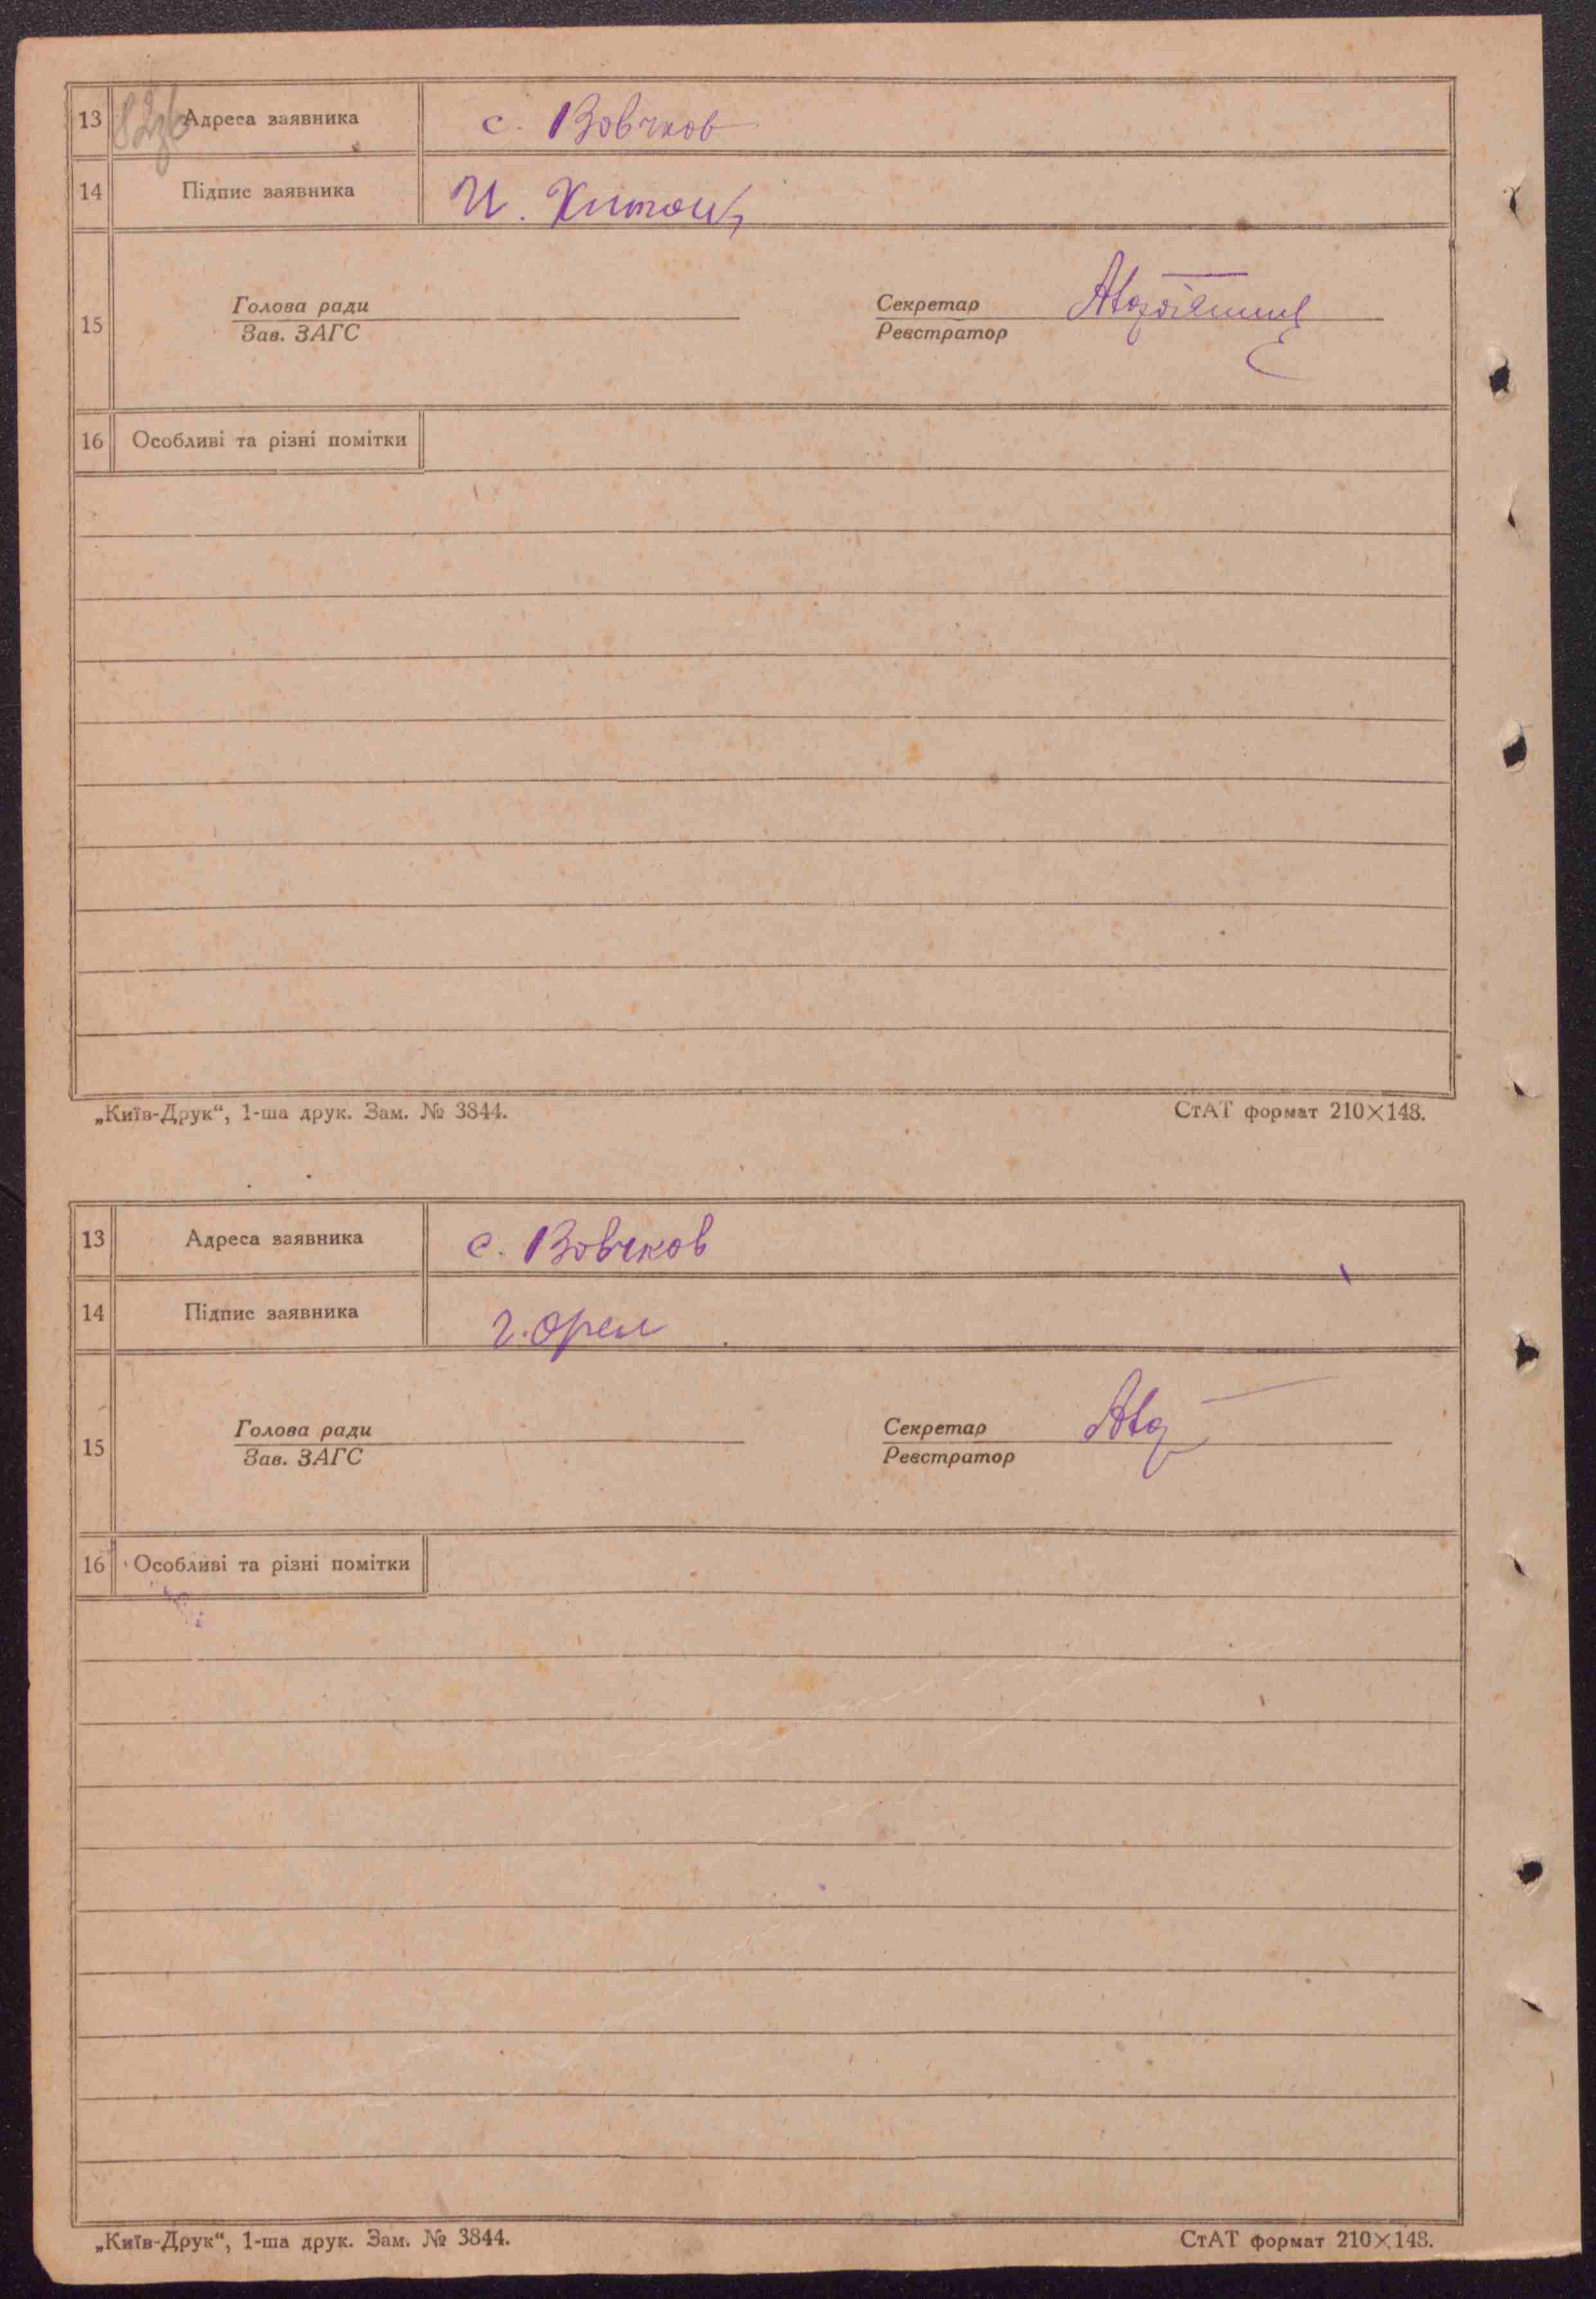 13 82зв Адреса заявника с. Вовчков
14 Підпис заявника И.
15 Голова ради Секретар
Зав. ЗАГС Реєстратор
16 Особливі та різні помітки
„Київ-Друк“, 1-ша друк. Зам. № 3844. СтАТ формат 210×148.
13 Адреса заявника с. Вовчков
14 Підпис заявника г. Орел
15 Голова ради Секретар
Зав. ЗАГС Реєстратор
16 Особливі та різні помітки
„Київ-Друк“, 1-ша друк. Зам. № 3844. СтАТ формат 210×148.